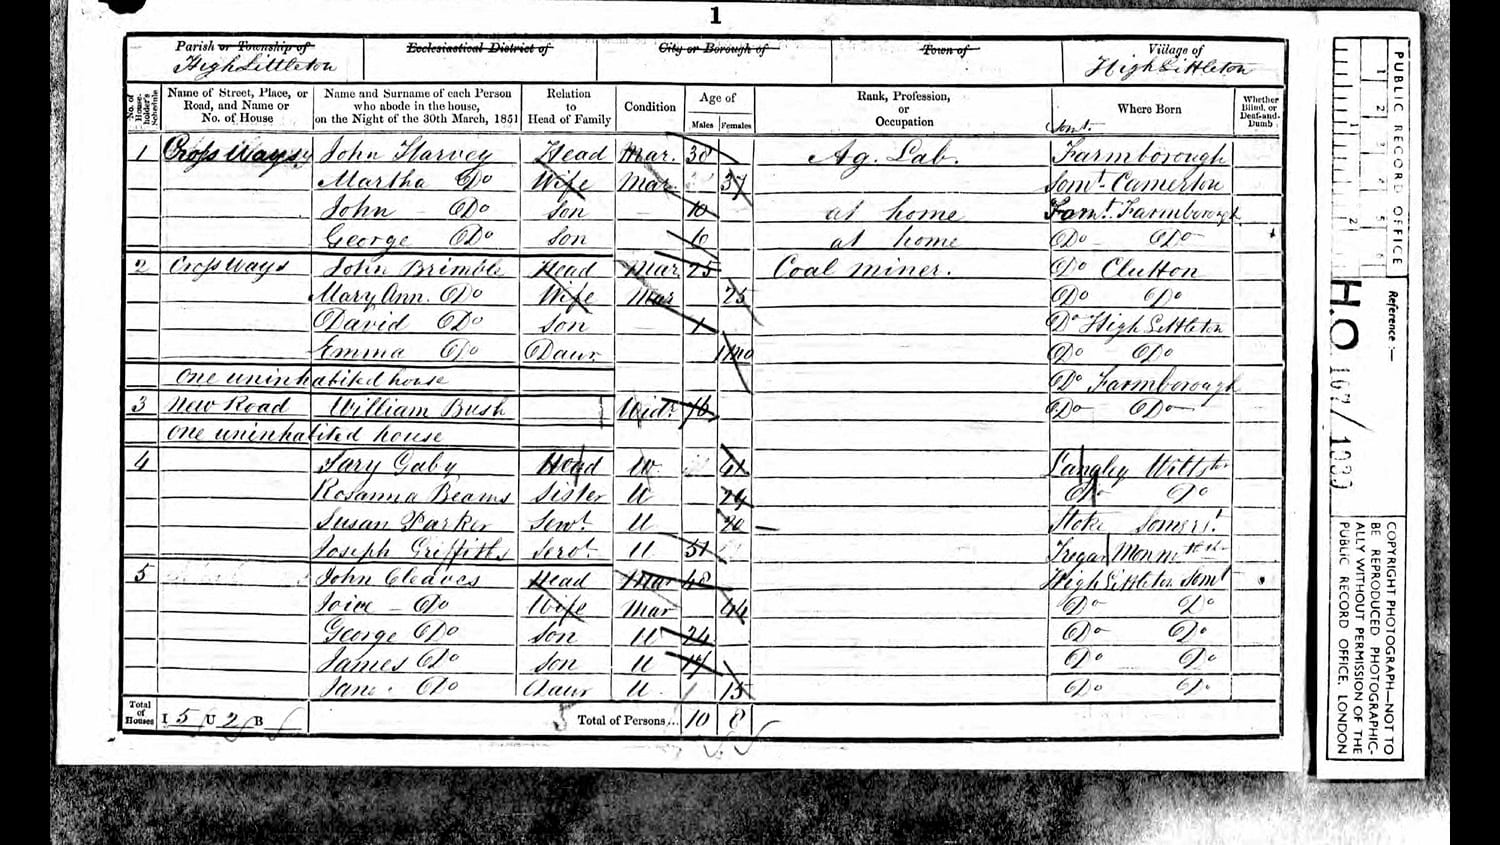 1
Parish or Township of Ecclesiastical District of City or Borough of Town of Village of
High Littleton High Littleton
No. of House-holder's Schedule Name of Street, Place, or Road, and Name or No. of House Name and Surname of each Person who abode in the house, on the Night of the 30th March, 1851 Relation to Head of Family Condition Age of Males Females Rank, Profession, or Occupation Where Born Whether Blind, or Deaf-and-Dumb
Somt.
1 Cross Ways John Harvey Head Mar. 38 Ag. Lab. Farmborough
Martha Do Wife Mar. 37 Somt Camerton
John Do Son 10 at home Somt. Farmborough
George Do Son 6 at home Do Do
2 Cross Ways John Brimble Head Mar 25 Coal miner. Do Clutton
Mary Ann. Do Wife Mar 25 Do Do
David Do Son 1 Do High Littleton
Emma Do Daur Do Do
One uninhabited house Do Farmborough
3 New Road William Bush Widr 76 Do Do
One uninhabited house
4 Gaby Head W. Langley
Rosanna Beams Sister U Do Do
Susan Parker Servt. U 20 Stoke Somerst
Joseph Griffiths Servt. U 51
5 John Cleaves Head Mar 48 High Littleton Somt
Do Wife Mar 44 Do Do
George Do Son U 24 Do Do
James Do Son U 14 Do Do
Jane. Do Daur U. 15 Do Do
Total of Houses I 5 U 2 B Total of Persons... 10 8
PUBLIC RECORD OFFICE
1 2
Reference:—
H.O. 107/
COPYRIGHT PHOTOGRAPH—NOT TO
BE REPRODUCED PHOTOGRAPHIC-
ALLY WITHOUT PERMISSION OF THE
PUBLIC RECORD OFFICE, LONDON